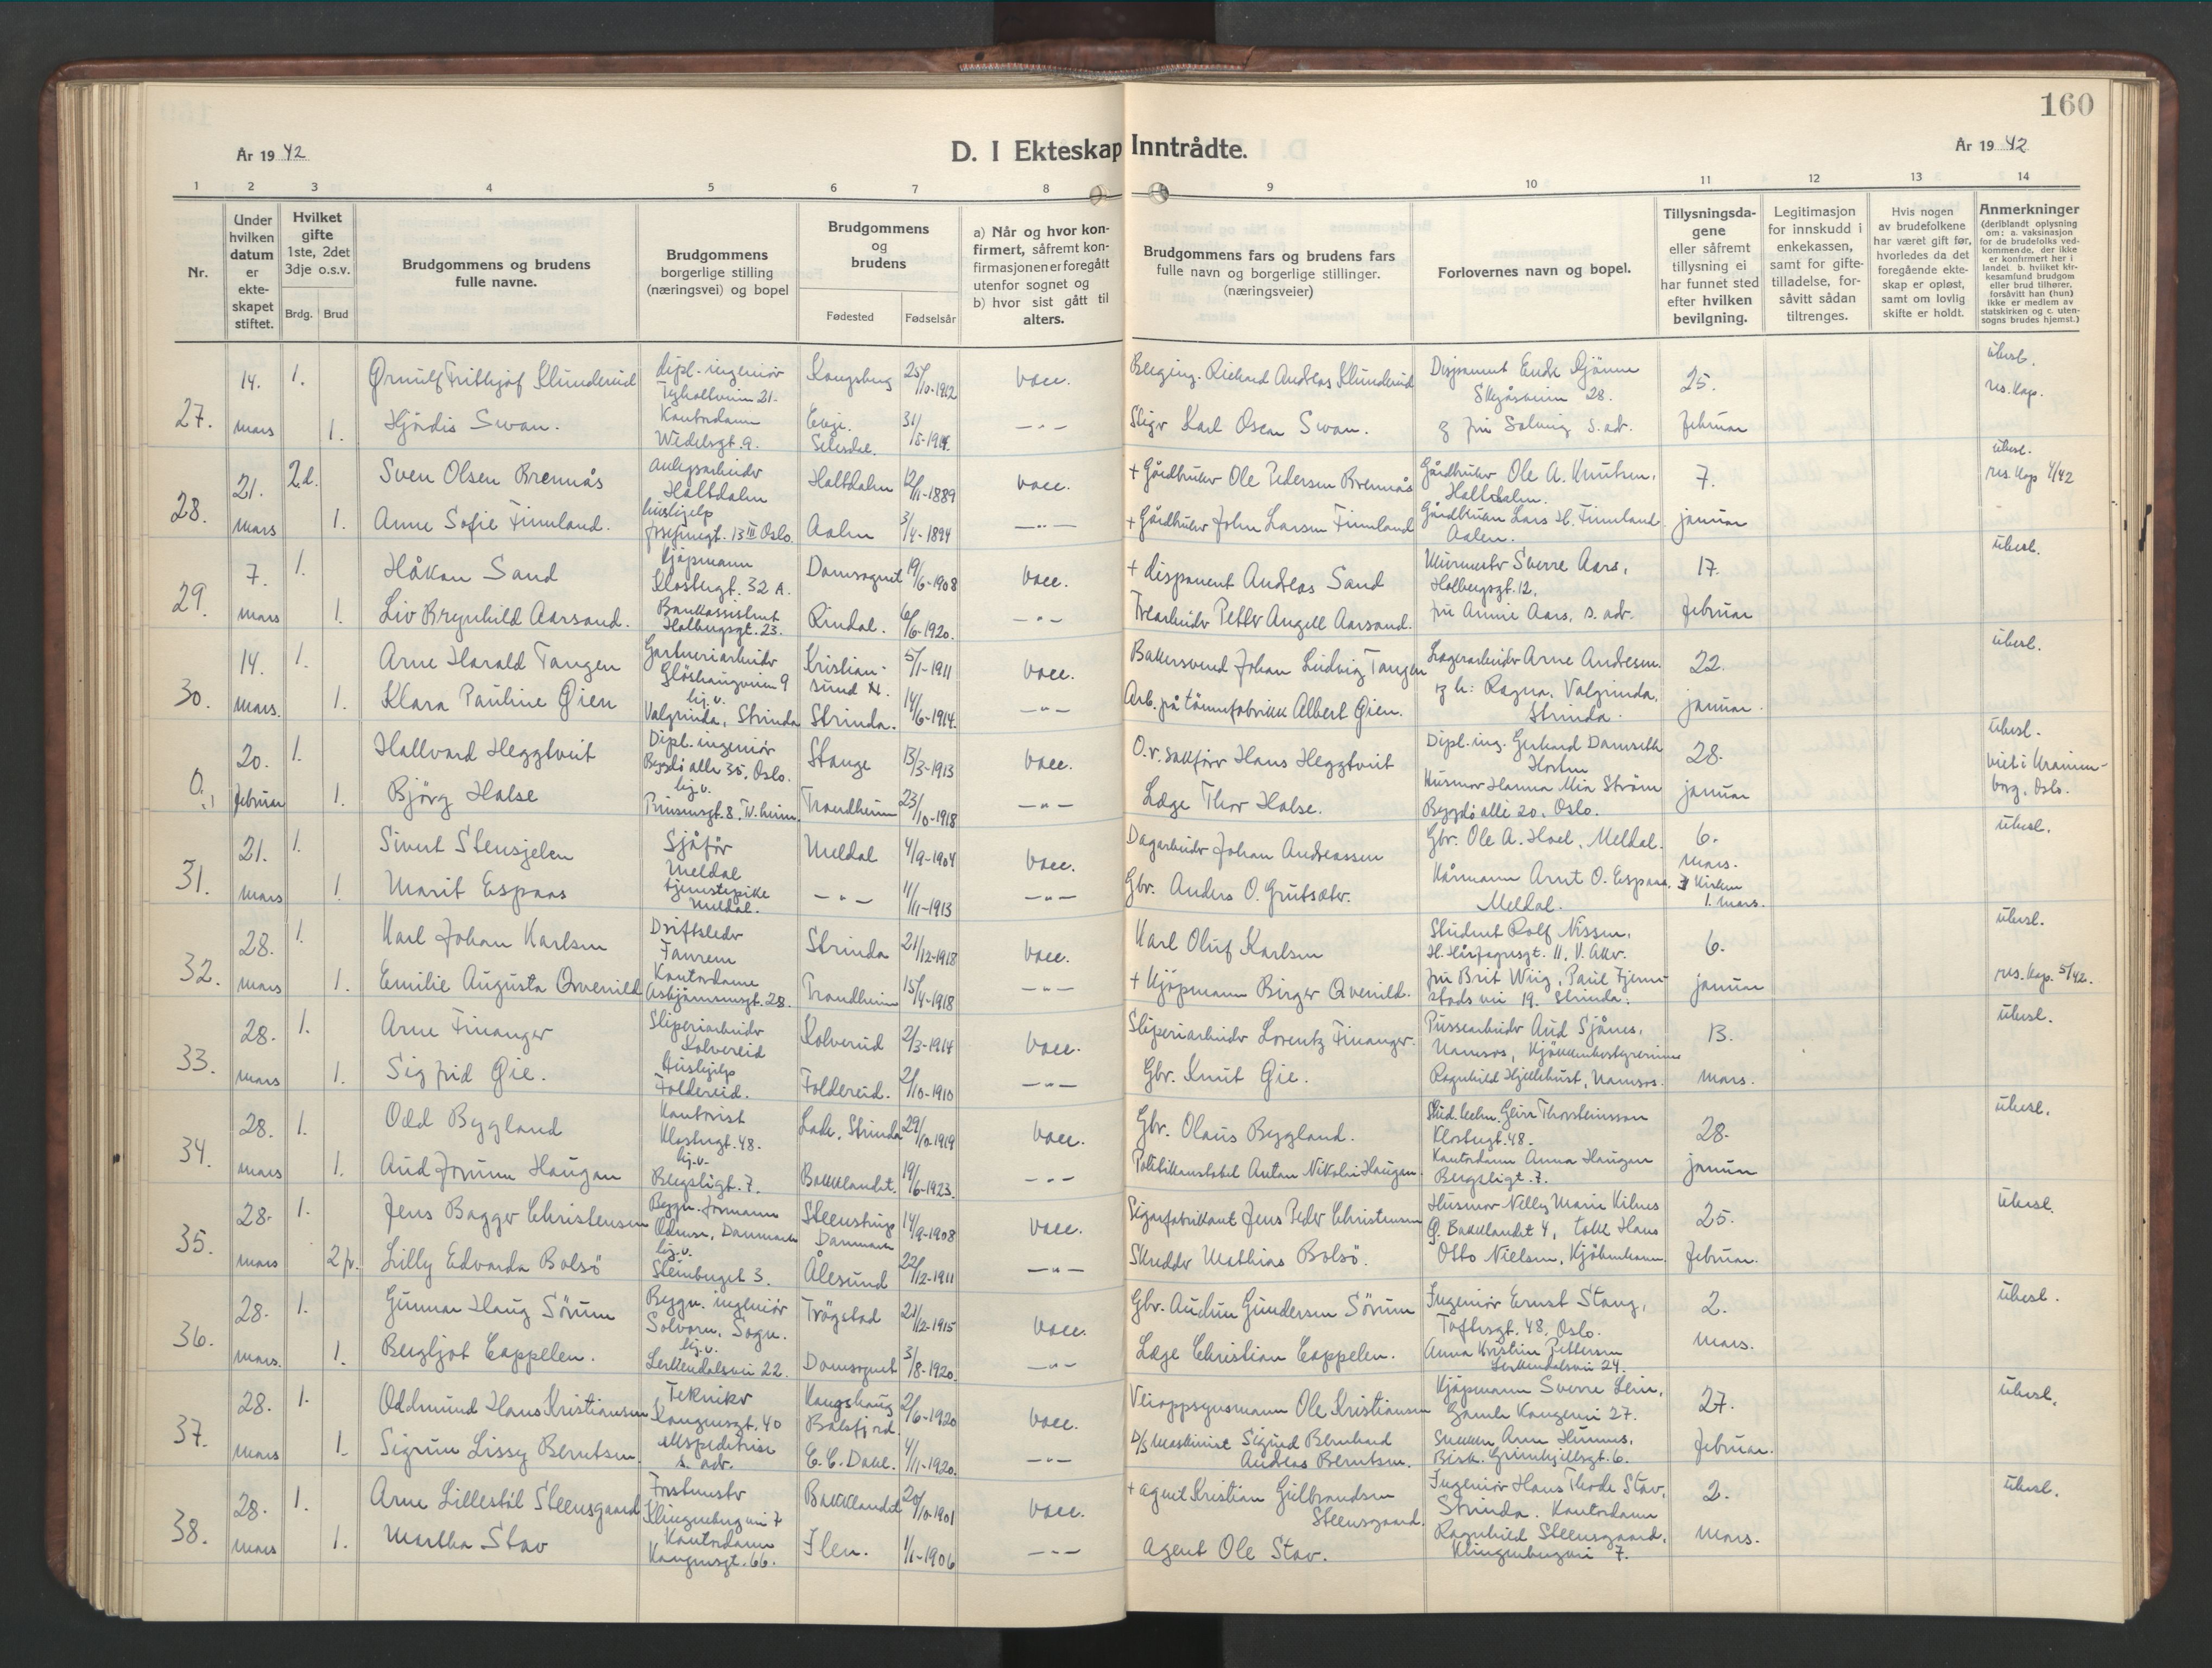 160
År 1942
D. I Ekteskap Inntrådte.
År 1942
1 2 3 4 5 6 7 8 9 10 11 12 13 14
Nr.
Under hvilken datum er ekteskapet stiftet.
Hvilket gifte 1ste, 2det 3dje o.s.v.
Brdg. Brud
Brudgommens og brudens fulle navne.
Brudgommens borgerlige stilling (næringsvei) og bopel
Brudgommens og brudens
Fødested Fødselsår
a) Når og hvor konfirmert, såfremt konfirmasjonen er foregått utenfor sognet og b) hvor sist gått til alters.
Brudgommens fars og brudens fars fulle navn og borgerlige stillinger. (næringsveier)
Forlovernes navn og bopel.
Tillysningsdagene eller såfremt tillysning ei har funnet sted efter hvilken bevilgning.
Legitimasjon for innskudd i enkekassen, samt for giftetilladelse, forsåvitt sådan tiltrenges.
Hvis nogen av brudefolkene har været gift før, hvorledes da det foregående ekteskap er opløst, samt om lovlig skifte er holdt.
Anmerkninger (deriblandt oplysning om: a. vaksinasjon for de brudefolks vedkommende, der ikke er konfirmert her i landet b. hvilket kirkesamfund brudgom eller brud tilhører, forsåvitt han (hun) ikke er medlem av statskirken og c. utensogns brudes hjemst.)
27. 14. mars 1. Ørnulf Frithjof Klunderud dipl. ingeniør Tyholtveien 21. Kongsberg 25/10-1912 vacc. Berging. Richard Andreas Klunderud Disponent Skyåsveien 28. 25. februar ubesl. res. kap.
1. Hjördis Swan. Kontordame Wedelsgt. 9. Evje. Setesdal. 31/ vacc. Karl Oscar Swan. og fru Solveig s. adr.
28. 21. mars 2d. Sven Olsen Brennås anlegsarbeider Holtdalen Holtdalen 12/11-1889 vacc. + Gårdbruker Ole Pedersen Brennås Gårdbruker Ole A. Knutsen, Holtdalen. 7. januar ubesl. res. kap 4/42
1. Anne Sofie Finnland. hushjelp Josefinegt. 13 III Oslo. Aalen 3/4-1894 -"- + Gårdbruker John Larsen Finnland Gårdbruker Lars H. Finnland Aalen.
29. 7. mars 1. Håkon Sand kjøpmann Klostergt. 32 A. Domsognet 19/6-1908 vacc. + disponent Andreas Sand Murmester Sverre Aars, Holbergsgt. 12. 17. februar ubesl.
1. Liv Brynhild Aarsand. Bankassistent Holbergsgt. 23. Rindal. 6/6-1920. -"- Trearbeider Petter Angell Aarsand. fru Annie Aars, s. adr.
30. 14. mars. 1. Arne Harald Tangen Gartneriarbeider Glöshaugveien 9 Kristiansund N. 5/1-1911 vacc. Bakersvend Johan Ludvig Tangen Lagerarbeider Arne Andresen 22. januar ubesl.
1. Klara Pauline Øien lig. v. Valgrinda, Strinda Strinda. 14/6-1914. -"- Arb. på tönnefabrikk Albert Øien. og h: Ragna, Valgrinda, Strinda.
0. 20. februar 1. Hallvard Heggtveit Dipl. ingeniör Bygdö alle 35, Oslo. Stange 13/3-1913 vacc. O.r. sakförer Hans Heggtveit Dipl. ing. Gerhard Damseth Horten 28. januar ubesl. viet i Uranienborg, Oslo.
1. Bjørg Halse lig. v. Prinsensgt. 8, Tr.heim. Trondheim 23/10-1918 -"- Læge Thor Halse. Husmor Hanna Mia Ström Bygdö alle 20, Oslo.
31. 21. mars 1. Sivert Stensjelen Sjåför Meldal Meldal 4/9-1904 vacc. Dagarbeider Johan Andreassen Gbr. Ole A. Hoel, Meldal. 6. mars. ubesl.
1. Marit Espaas tjenestepike Meldal. -"- 1/11-1913 -"- Gbr. Anders O. Grutsæter. Arnt O. Espaas, Meldal. 1. mars.
32. 28. mars 1. Karl Johan Karlsen Driftsleder Fannrem Strinda 21/12-1918 vacc. Karl Oluf Karlsen Student Rolf Nissen, H. Hårfagresgt. 11, V. Aker. 6. januar ubesl.
1. Emilie Augusta Qvenild Kontordame Asbjörnsensgt. 28. Trondheim 15/4-1918 -"- + Kjøpmann Birger Qvenild. fru Brit Wiig, Paul Fjermstads vei 19. Strinda. res. kap. 5/42.
33. 28. mars 1. Arne Finanger Sliperiarbeider Kolvereid Kolvereid 2/3-1914 vacc. Sliperiarbeider Lorentz Finanger. Pussearbeider Aud Sjånes, Namsos, Kjökkenbestyrerinne 13. mars. ubesl.
1. Sigfrid Øie. Hushjelp Foldereid. Foldereid. 2/10-1910 -"- Gbr. Knut Øie. Ragnhild Hjellehust, Namsos.
34. 28. mars 1. Odd Bygland Kontorist Klostergt. 48. Lade, Strinda 29/10-1919 vacc. Gbr. Olaus Bygland. Stud. techn. Geirr Thorsteinsson Klostergt. 48. 28. januar ubesl.
1. Aud Jorunn Haugan lig. v. Bergsligt. 7. Bakklandet. 19/6-1923. -"- Politikonstabel Anton Nikolai Haugan. Kontordame Anna Haugen Bergsligt. 7.
35. 28. mars 1. Jens Bagger Christensen Bygn. formann Odense, Danmark Steenstrup Danmark 14/9-1908 vacc. Sigarfabrikant Jens Peder Christensen Husmor Nelly Marie Kilnes Ø. Bakklandet 4, 25. februar. ubesl.
2 fr. Lilly Edvarda Bolsö lig. v. Steinberget 3. Ålesund 22/12-1911 -"- Skredder Mathias Bolsö. Otto Nielsen, Kjöbenhavn.
36. 28. mars. 1. Gunnar Haug Sörum Bygn. ingeniör Solvorn, Sogn. Trögstad 21/12-1915 vacc. Gbr. Audun Gundersen Sörum Ingeniör Ernst Stang, Toftesgt. 48, Oslo. 2. mars. ubesl.
1. Bergljot Cappelen. lig. v. Lerkendalsvei 22. Domsognet 3/8-1920. -"- Læge Christian Cappelen. Anna Kristin Pettersen Lerkendalsvei 24.
37. 28. mars 1. Oddmund Hans Kristiansen Tekniker Kongensgt. 40 Kongshaug Balsfjord. 2/6-1920 vacc. Veioppsynsmann Ole Kristiansen Kjøpmann Sverre Lein, Gamle Kongevei 27. 27. februar. ubesl.
1. Sigrun Lissy Berntsen ekspeditrise s. adr. E. C. Dahl. 4/11-1920. -"- D/S Maskinist Sigurd Bernhard Andreas Berntsen. Bisk. Grimkjellsgt. 6.
38. 28. mars 1. Arne Lillestöl Steensgaard Forstmester Klingenbergvei 7 Bakklandet 20/10-1901 vacc. + agent Kristian Gulbrandsen Steensgaard. Ingeniör Hans Thode Stav, Strinda. Kontordame 2. mars. ubesl.
1. Martha Stav Kontordame Kongensgt. 66. Ilen. 1/1-1906 -"- Agent Ole Stav. Ragnhild Steensgaard, Klingenbergvei 7.